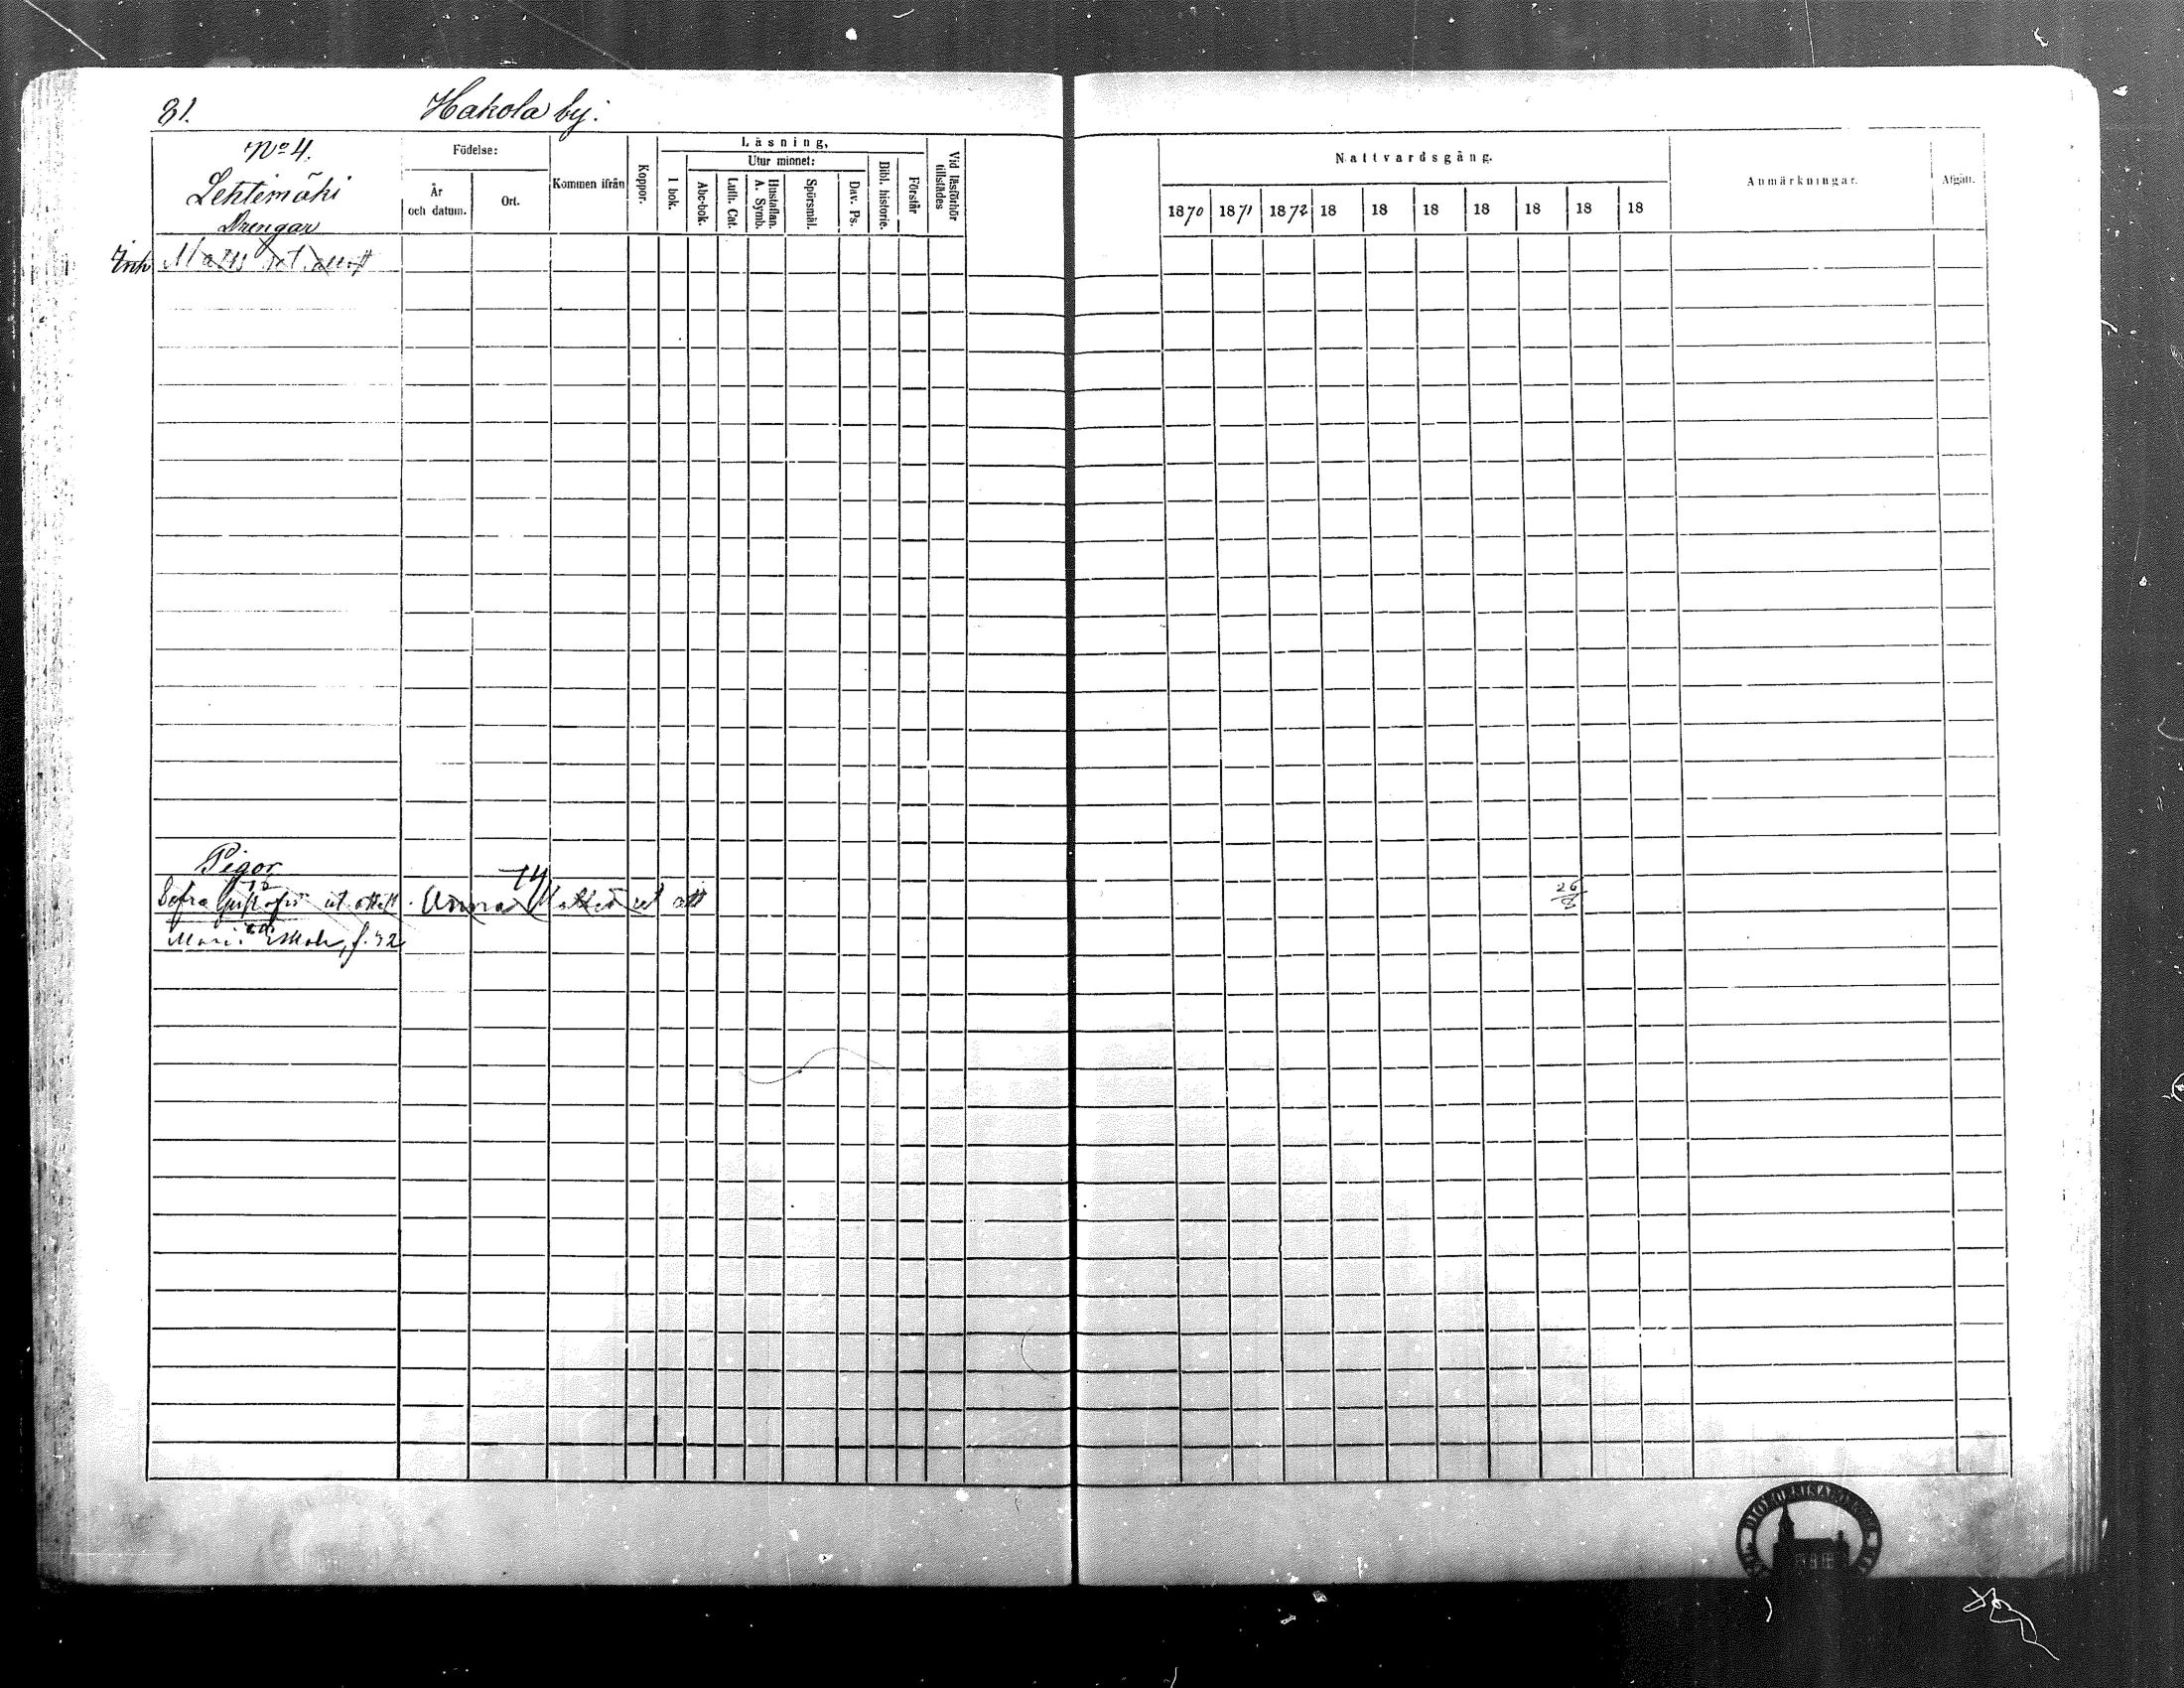 81. Hakola by.
No 4.
Lehtimäki
Drengar
Födelse:
År
och datum.
Ort.
Kommen ifrån
Koppor.
Läsning,
I bok.
Utur minnet:
Abc-bok.
Luth. Cat.
Hustaflan.
A. Symb.
Spörsmål.
Dav. Ps.
Bibl. historie.
Förstår
Vid läsförhör
tillstädes
Nattvardsgång.
1870 1871 1872 18 18 18 18 18 18 18
Anmärkningar.
Afgått.
Matts ut attest
Pigor
74
Sofia ut attest. Anna ut att
26
8
Maria f. 42